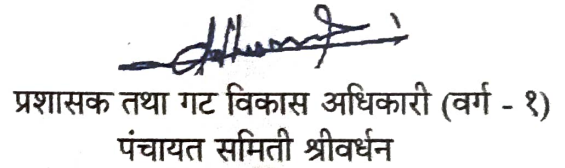 प्रशासक तथा गट विकास अधिकारी (वर्ग - १)
पंचायत समिती श्रीवर्धन